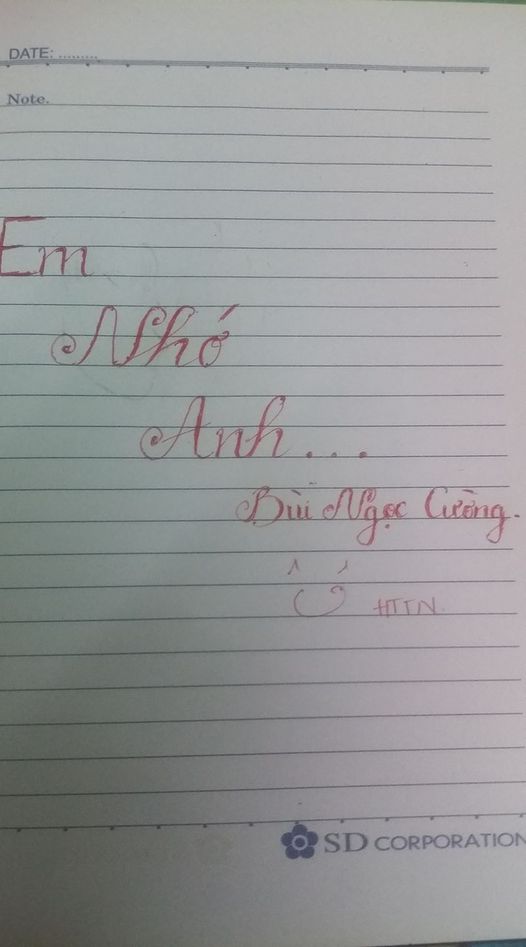 DATE: .........
Note.
Em
Nhớ
Anh...
Bùi Ngọc Cường.
HTTN
SD CORPORATION